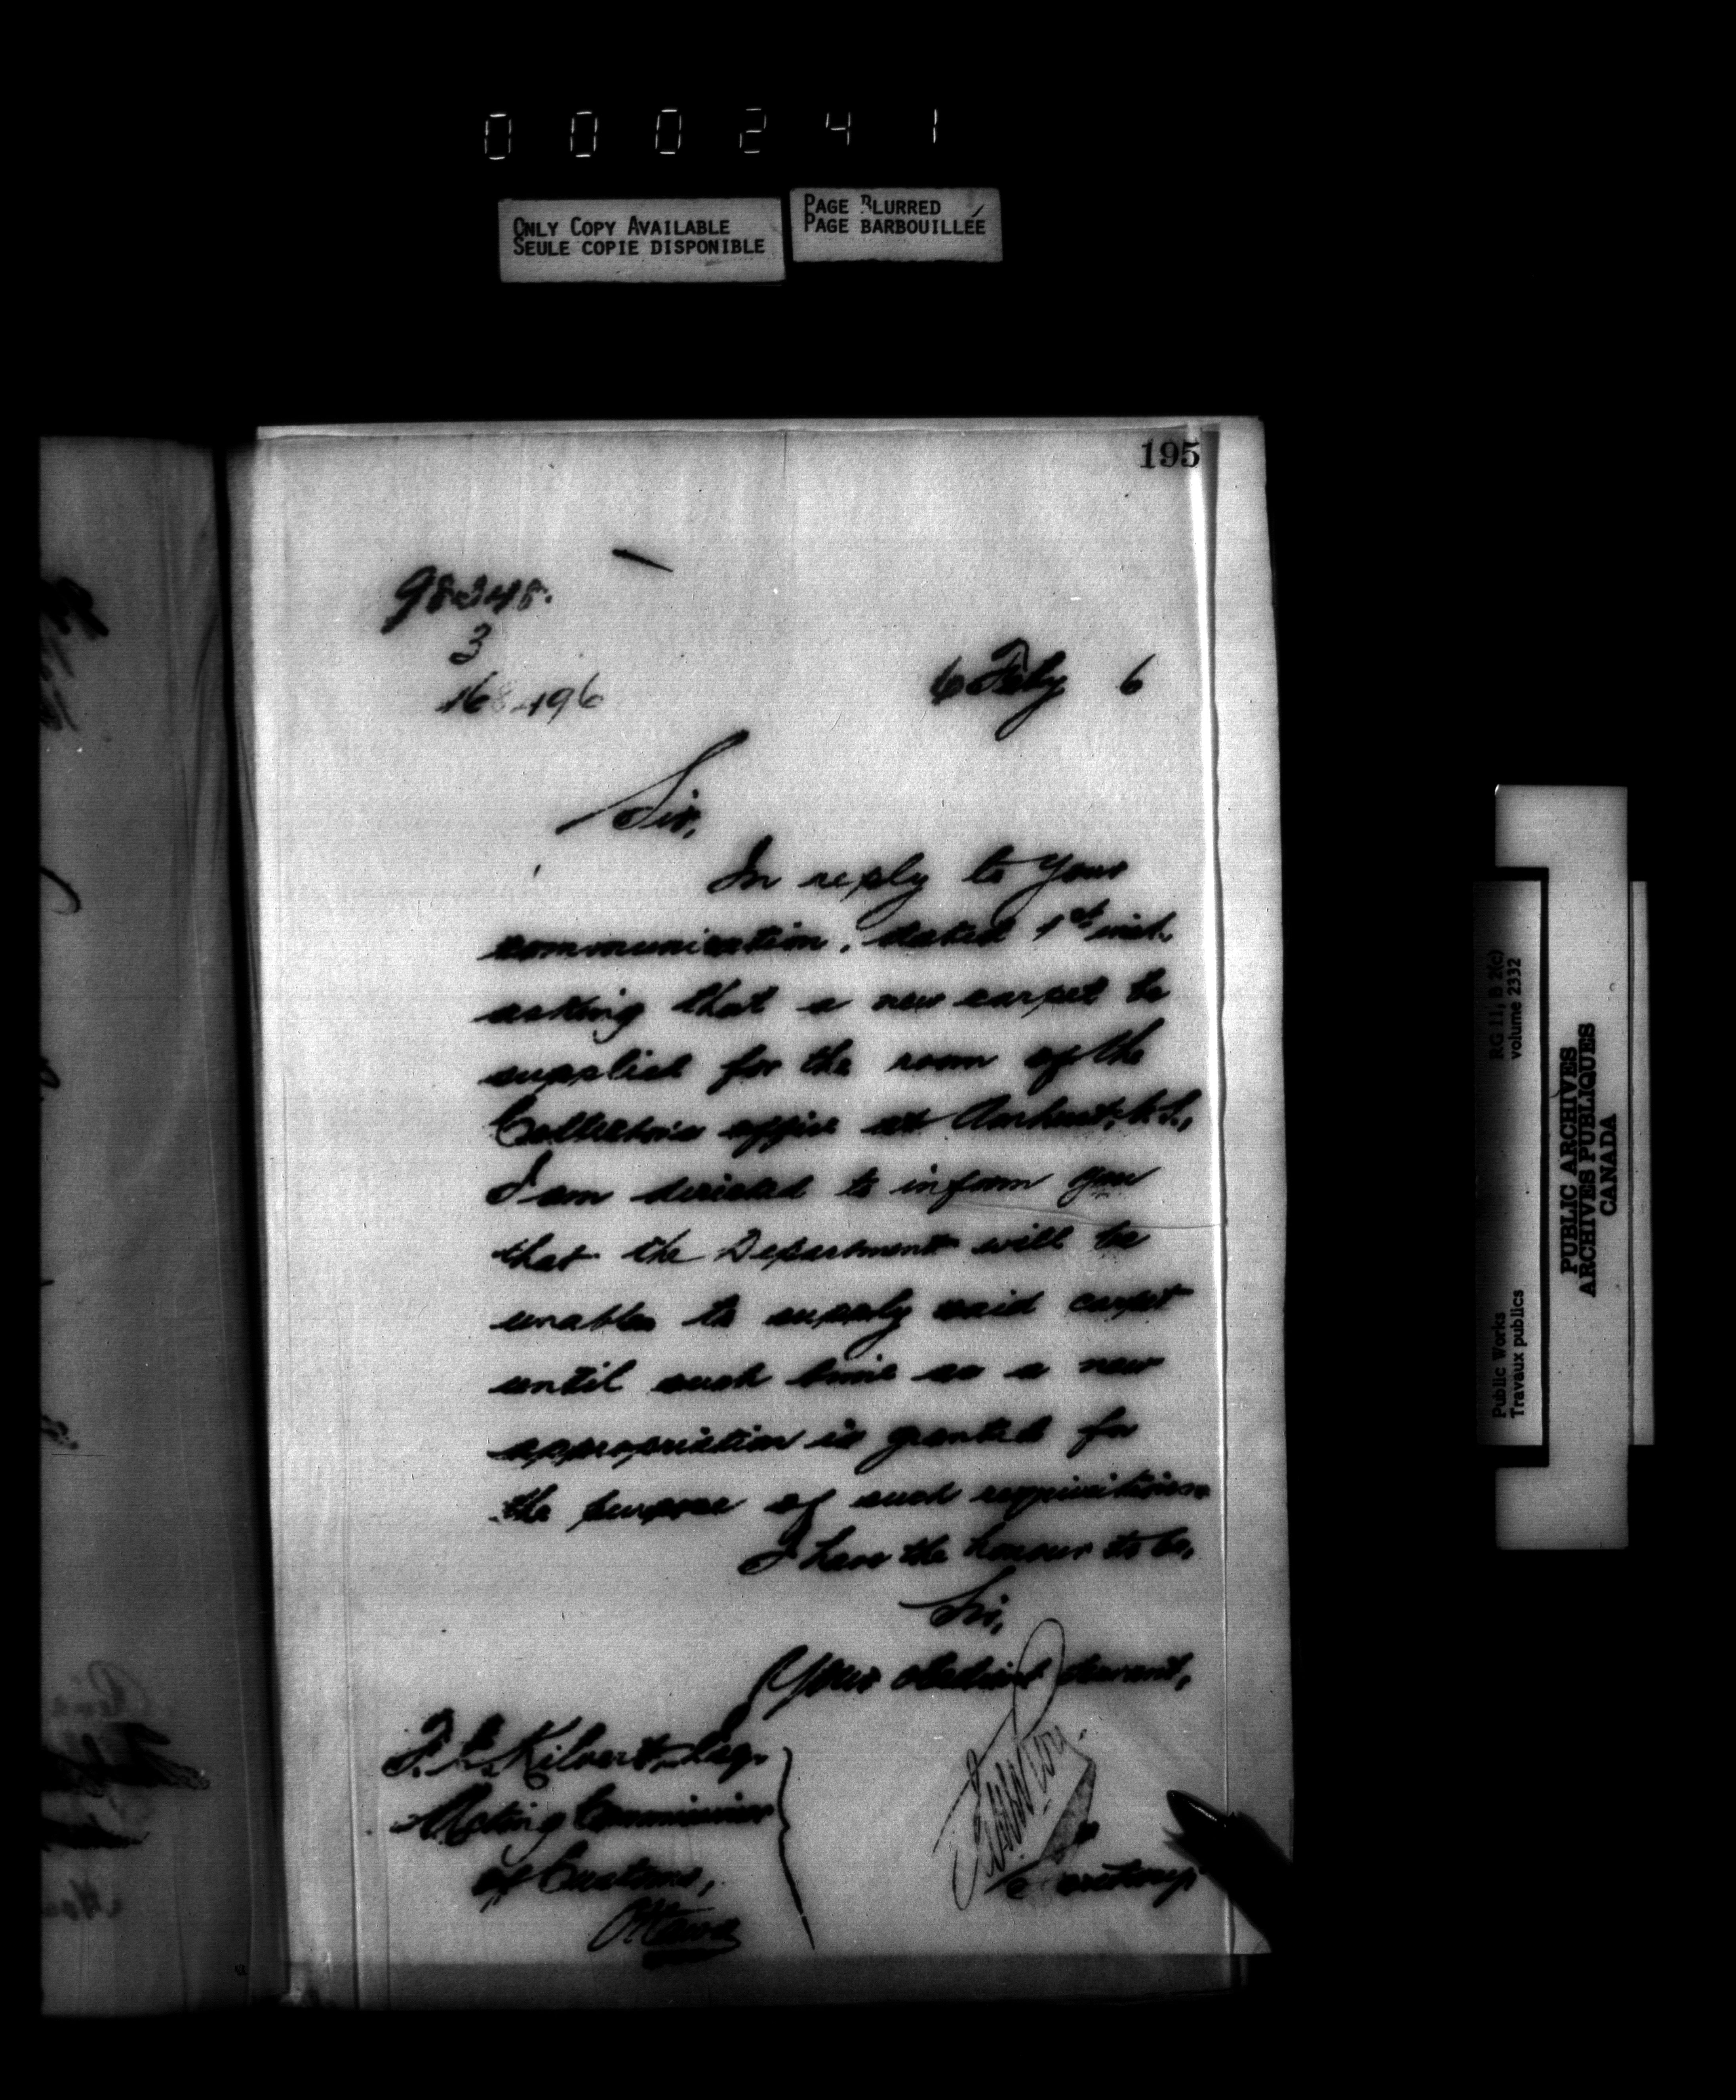 000241
ONLY COPY AVAILABLE
SEULE COPIE DISPONIBLE
PAGE BLURRED
PAGE BARBOUILLÉE
195
3
6 Feby 6
Sir,
In reply to your
communication, dated 1st inst.
asking that a new carpet be
supplied for the room of the
Collectors office at Amherst, N.S.,
I am directed to inform you
that the Department will be
unable to supply said carpet
until such time as a new
appropriation is granted for
the purpose of such requisitions.
I have the honour to be,
Sir,
Your obedient servant,
Kilvert, Esq.
Acting Commissioner
of Customs,
Ottawa
Secretary
RG 11, B 2(c)
volume 2332
Public Works
Travaux publics
PUBLIC ARCHIVES
ARCHIVES PUBLIQUES
CANADA